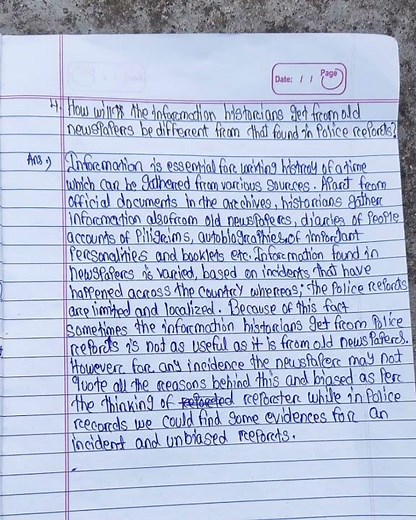 Date: / / Page
4. How will the information historians get from old
newspapers be different from that found in Police reports?
Ans:) Information is essential for writing histroy of a time
which can be gathered from various sources. Apart from
official documents in the archives, historians gather
information also from old newspapers, diaries of People
accounts of Piligrims, autobiographies of important
Personalities and booklets etc. Information found in
newspapers is varied, based on incidents that have
happened across the country whereas; the Police reports
are limited and localized. Because of this fact
sometimes the information historians get from Police
reports is not as useful as it is from old newspapers.
However for any incidence the newspaper may not
quote all the reasons behind this and biased as Per
the thinking of reporter while in Police
records we could find some evidences for an
incident and unbiased reports.